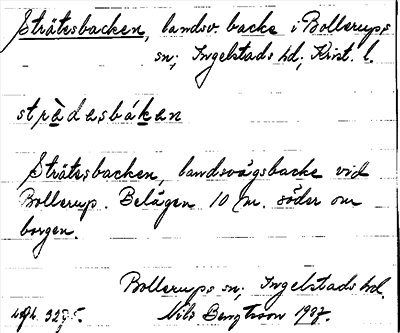 Strätesbacken, landsv. backe i Bollerups
sn, Ingelstads hd, Krist. l.
strädesbáken
Strätesbacken, landsvägsbacke vid
Bollerup. Belägen 10 m. söder om
borgen.
Bollerups sn, Ingelstads hd.
Nils Bengtsson 1937.